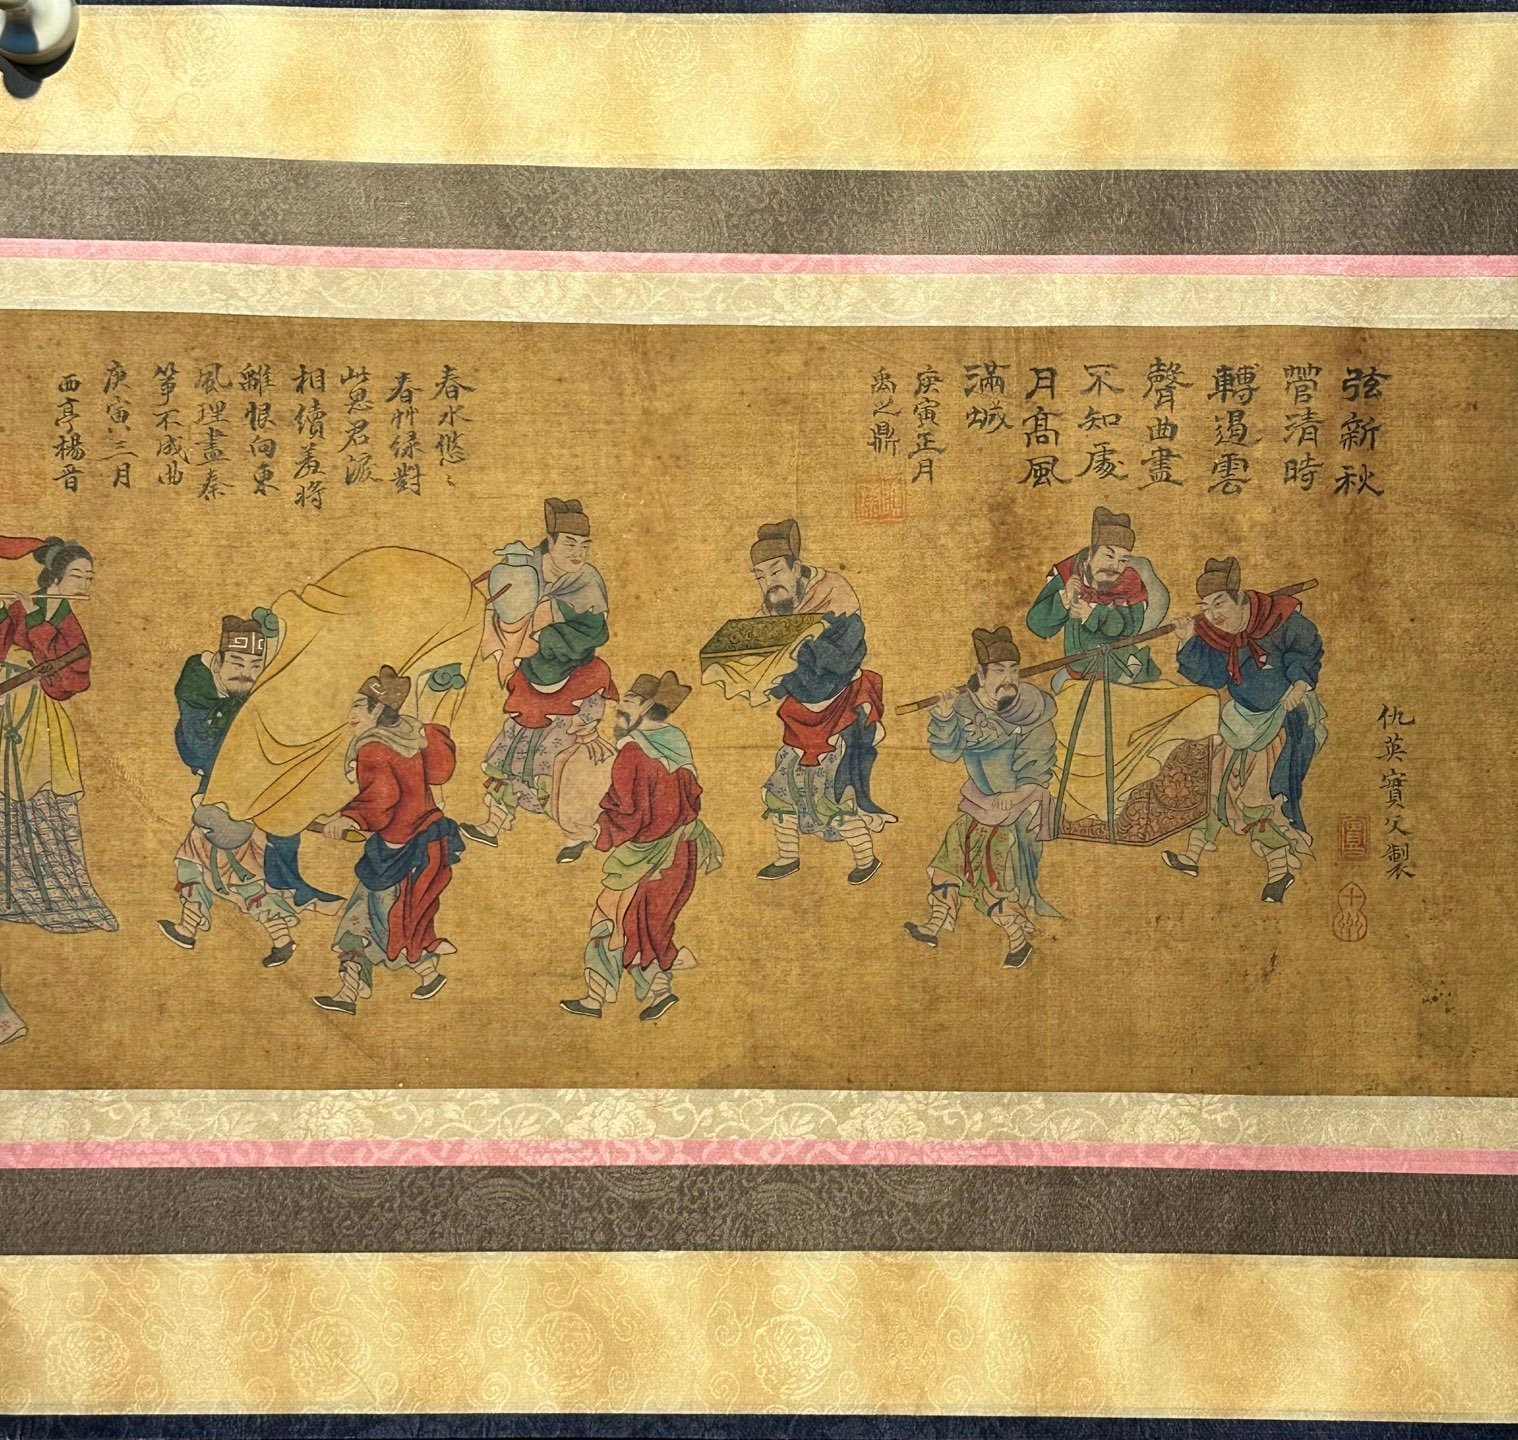 弦新秋
管清時
轉遏雲
聲曲盡
不知處
月高風
滿城
庚寅正月
禹之鼎
仇英實父製
十州
春水悠〻
春艸綠對
此思君淚
相續羞將
離恨向東
風理盡秦
箏不成曲
庚寅三月
西亭楊晉